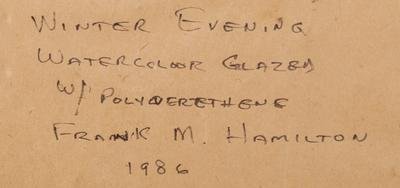 WINTER EVENING
WATERCOLOUR GLAZED
W/ POLYUERETHENE
FRANK M. HAMILTON
1986